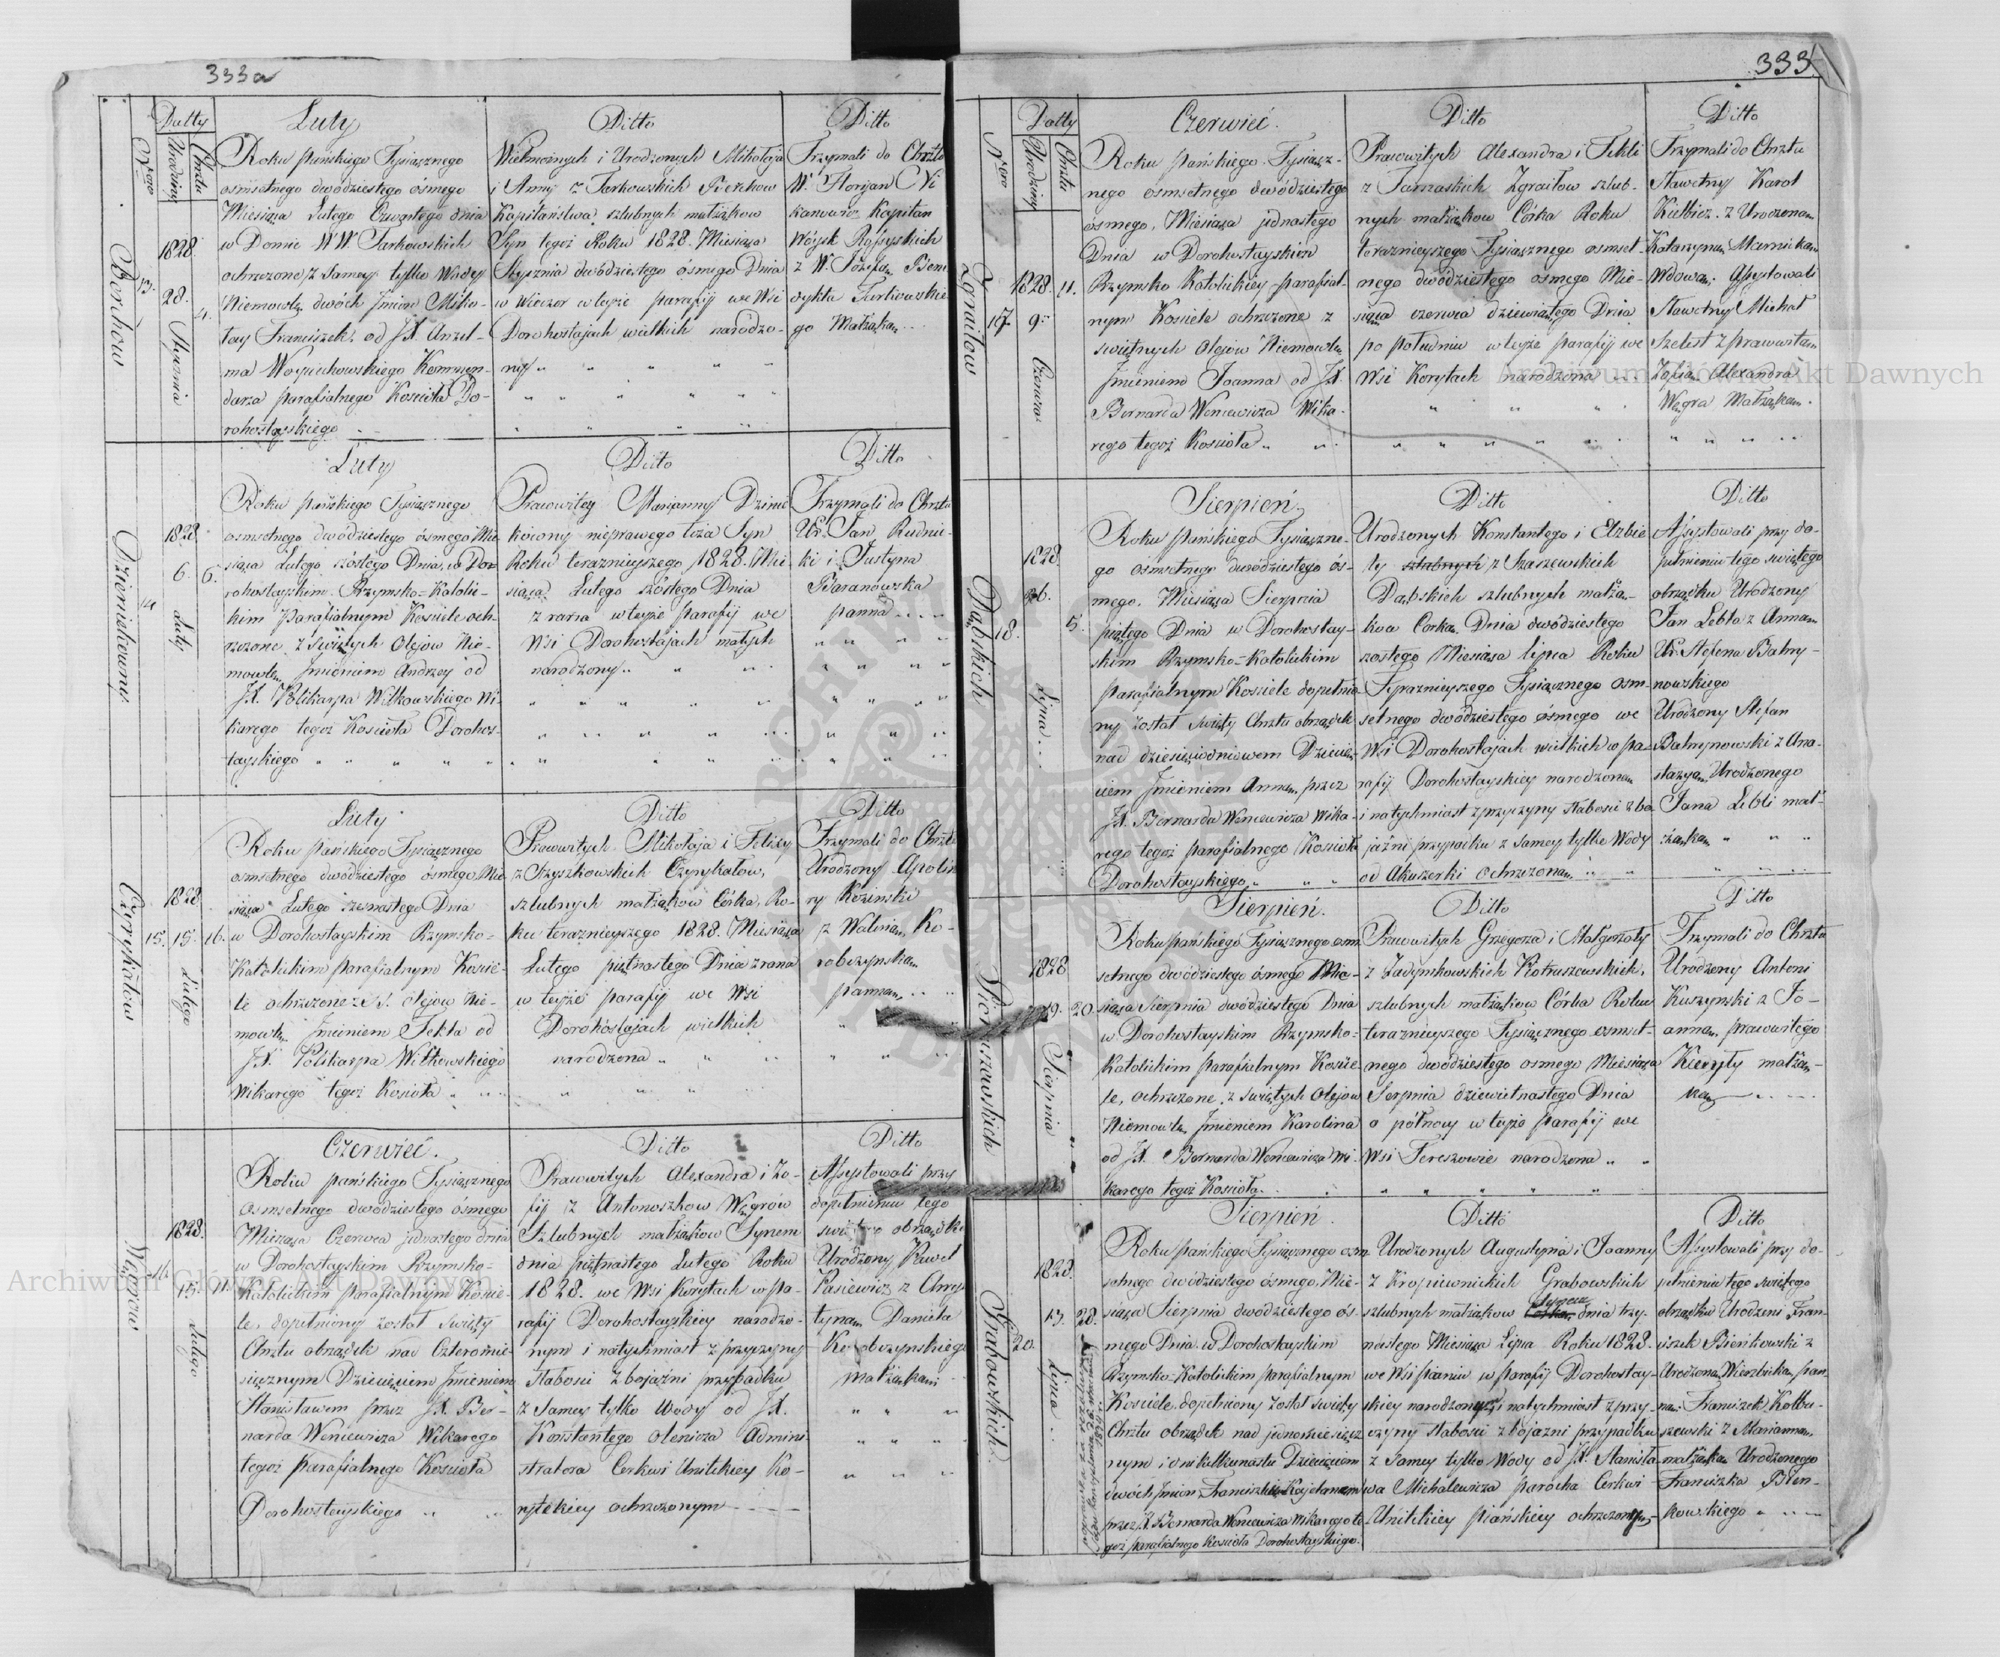 333a
Datty
Nro
Urodziny
Chrztu
Luty
Ditto
Ditto
Pierchow
13.
1828.
28.
Stycznia
4.
Roku Pańskiego Tysiącznego
osmsetnego dwódziestego ósmego
Miesiąca Lutego Czwartego dnia
w Domie WW. Tarkowskich
ochrzcone z samey tylko Wody
Niemowle dwóch Jmion Miko-
łay Franciszek, od JX. Anzel-
ma Woyciechowskiego Kommen-
darza parafialnego Kościoła Do-
rohostayskiego
Wielmożnych i Urodzonych Mikołaja
i Anny z Tarkowskich Pierchow
Kapitaństwa szlubnych małżąkow
Syn tegoż Roku 1828. Miesiąca
Stycznia dwódziestego ósmego Dnia
w Wieczor w teyże parafij we Wsi
Dorohostajach wielkich narodzo-
ny
Trzymali do Chrztu
W. Floryan Ni
kanowicz Kapitan
Wóysk Rossyskich
z W. Józefą Bene
dykta Turkowskie
go Małżąką
Luty
Ditto
Ditto
14
1828
6.
Luty
6.
Roku Pańskiego Tysiącznego
osmsetnego dwódziestego ósmego Mie
siąca Lutego szóstego Dnia, w Doro
rohostayskim Rzymsko-Katolic-
kim Parafialnym Kościele och-
rzczone z Świętych Olejow Nie-
mowle Jmieniem Andrzey od
JX. Polikarpa Witkowskiego Wi-
karego tegoż Kościoła Dorohos-
tayskiego
Pracowitey Maryanny Dzienie
kiowny nieprawego łoża Syn
Roku teraznieyszego 1828. Mie-
siąca Lutego szóstego Dnia
z rana w teyże parafij we
Wsi Dorohostajach małych
narodzony
Trzymali do Chrztu
Ur. Jan Rudnic-
ki i Justyna
Baranowska
panna
Luty
Ditto
Ditto
Czyrykałow
15.
1828
15.
Lutego
16.
Roku Pańskiego Tysiącznego
osmsetnego dwódziestego ósmego Mie
siąca Lutego szesnastego Dnia
w Dorohostayskim Rzymsko-
Katolickim parafialnym Koście-
le ochrzcone z S. Olejow Nie-
mowle Jmieniem Tekla od
JX. Polikarpa Witkowskiego
Wikarego tegoż Kościoła
Prawowitych Mikołaja i Felicy
z Szyszkowskich Czyrykałow,
szlubnych małżąkow Córka, Ro-
ku terazniejszego 1828. Miesiąca
Lutego piętnastego Dnia z rana
w teyże parafij we Wsi
Dorohostajach wielkich
narodzona
Trzymali do Chrztu
Urodzony Apolin
ry Kozinski
z Waleriją Ko-
robczynską
panną
Czerwiec.
Ditto
Ditto
Węgrow
16.
1828.
15.
Lutego
11.
Roku Pańskiego Tysiącznego
Osmsetnego dwódziestego ósmego
Miesiąca Czerwca jednastego dnia
w Dorohostayskim Rzymsko-
Katolickim parafialnym Koście-
le, dopełniony został święty
Chrztu obrządek nad Czteromie-
sięcznym Dziecięciem Jmieniem
Stanisławem przez JX. Ber-
narda Weniewicza Wikarego
tegoż parafialnego Kościoła
Dorohostayskiego
Prawowitych Alexandra i Zo-
fij z Antonoszkow Węgrów
Szlubnych małżąkow Synem
dnia piętnastego Lutego Roku
1828. we Wsi Korytach w pa-
rafij Dorohostayskiey narodzo-
nym i natychmiast z przyczyny
słabości z bojaźni przypadku
z samey tylko Wody od JX.
Konstantego Olenicza Admini-
stratora Cerkwi Unitskiey Ko-
rytskiey ochrzczonym
Assystowali przy
dopełnieniu tego
świętego obrządku
Urodzony Paweł
Pasiewicz z Chry-
styną Daniela
Korobczynskiego
małżąkami
333
Datty
Nro
Urodziny
Chrztu
Czerwiec.
Ditto
Ditto
Zgraiłow
17
1828
9.
Czerwca
11.
Roku Pańskiego Tysiącz-
nego osmsetnego dwódziestego
ósmego, Miesiąca jednastego
Dnia w Dorohostayskim
Rzymsko Katolickiey parafial-
nym Kościele ochrzcone z
świętnych Olejow Niemowle
Jmieniem Joanna od JX.
Bernarda Weniewicza Wika-
rego tegoż Kościoła
Pracowitych Alexandra i Tekli
z Tarszaskich Zgraiłow szlub-
nych małżąkow Córka Roku
terazniejszego Tysiącznego osmset-
nego dwódziestego ósmego Mie-
siąca czerwca dziewiątego Dnia
po południu w teyże parafij we
Wsi Korytach narodzona
Trzymali do Chrztu
Sławetny Karol
Kiełbicz z Urodzoną
Katarzyną Marnicką
Wdową. Assystowali
Sławetny Michał
Szelest z prawowitą
Zofią Alexandra
Węgra Małżąką.
Sierpień.
Ditto
Ditto
Dąbskich
18.
1828.
26.
Lipca
5.
Roku Pańskiego Tysiączne-
go osmsetnego dwódziestego ós-
mego, Miesiąca Sierpnia
piątego Dnia w Dorohostay-
skim Rzymsko-Katolickim
parafialnym Kościele dopełnio
ny został święty Chrztu obrządek
nad dziesięciodniowem Dziecię
ciem Jmieniem Anną przez
JX. Bernarda Weniewicza Wika-
rego tegoż parafialnego Kościoła
Dorohostayskiego
Urodzonych Konstantego i Elzbie
ty szlubnych z Szaszewskich
Dąbskich szlubnych małżą-
kow Corką. Dnia dwódziestego
szóstego Miesiąca lipca Roku
Teraznieyszego Tysiącznego osm-
setnego dwódziestego ósmego we
Wsi Dorohostajach wielkich w pa-
rafij Dorohostayskiey narodzoną
i natychmiast z przyczyny słabości z bo
jaźni przypadku z samey tylko Wody
od Akuszerki ochrzczoną
Assystowali przy do-
pełnieniu tego świętego
obrządku Urodzony
Jan Lebla z Anną
Ur. Stefena Batny-
nowskiego
Urodzony Stefan
Batnynowski z Ana-
stazyą Urodzonego
Jana Lebli mał-
żąką
Sierpień.
Ditto
Ditto
Piotraszewskich
1828
19.
Sierpnia
20.
Roku Pańskiego Tysiącznego osm
setnego dwódziestego ósmego Mie-
siąca Sierpnia dwódziestego Dnia
w Dorohostayskim Rzymsko-
Katolickim parafialnym Koście
le, ochrzcone z świętych Olejow
Niemowle Jmieniem Karolina
od JX. Bernarda Weniewicza Wi-
karego tegoż Kościoła
Prawowitych Grzegorza i Małgorzaty
z Zadynkowskich Piotraszewskich,
szlubnych małżąkow Córka Roku
terazniejszego Tysiącznego osmset-
nego dwódziestego ósmego Miesiąca
Sierpnia dziewietnastego Dnia
o północy w teyże parafij we
Wsi Tereszowie narodzona
Trzymali do Chrztu
Urodzony Antoni
Kuszynski z Jo-
anną prawowitego
Kieryty małżą-
ką
Sierpień.
Ditto
Ditto
Grabowskich
20.
1828.
13.
Lipca
28.
Roku Pańskiego Tysiącznego osm
setnego dwódziestego ósmego, Mie-
siąca Sierpnia dwódziestego ós-
mego Dnia w Dorohostayskim
Rzymsko-Katolickim parafialnym
Kościele dopełniony został święty
Chrztu obrządek nad jednomiesięcz
nym i onkilkunastu Dziecięciem
dwóch Jmion Franciszkiem Kajetanem
przez X. Bernarda Weniewicza Wikarego te-
goż parafialnego Kościoła Dorohostayskiego.
Urodzonych Augustyna i Joanny
z Kropiwnickich Grabowskich
szlubnych małżąkow Synem Corką dnia trzy-
nastego Miesiąca Lipca Roku 1828.
we Wsi Pianiu w parafij Dorohostay-
skiey narodzonym i natychmiast z przy-
czyny słabości z bojaźni przypadku
z samey tylko Wody od JX. Stanisła
wa Michalewicza parocha Cerkwi
Unitskiey Piańskiey ochrzczonym
Assystowali przy do-
pełnieniu tego świętego
obrządku Urodzeni Fran-
ciszek Bieńkowski z
Urodzoną Wierzbicką pan-
ną. Franciszek Kołbu-
szewski z Maryanną
małżąką Urodzonego
Franciszka Bień-
kowskiego
Archiwum Główne Akt Dawnych
Archiwum Główne Akt Dawnych